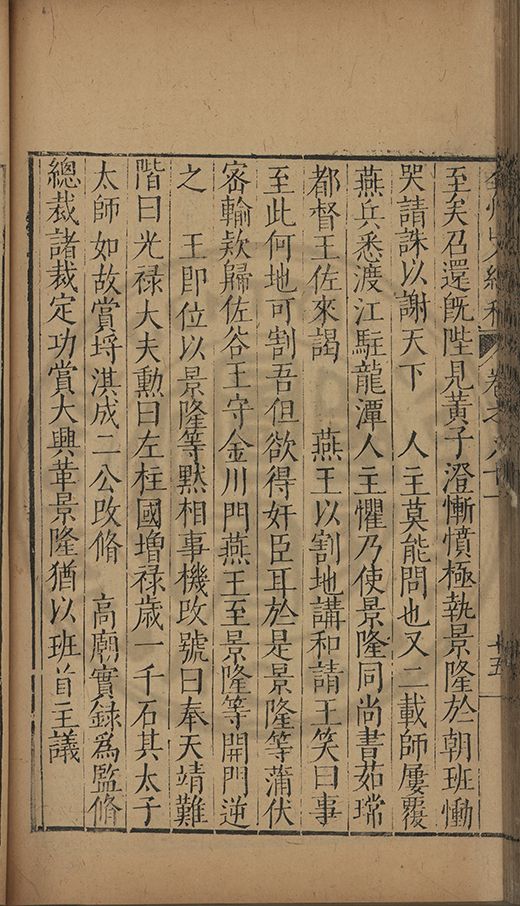 至矣召還旣陛見黃子澄慚憤極執景隆於朝班慟
哭請誅以謝天下　人主莫能問也又二載師屢覆
燕兵悉渡江駐龍潭人主懼乃使景隆同尚書茹瑺
都督王佐來謁　燕王以割地講和請王笑曰事
至此何地可割吾但欲得奸臣耳於是景隆等蒲伏
密輸欵歸佐谷王守金川門燕王至景隆等開門逆
之　王即位以景隆等默相事機攺號曰奉天靖難
階曰光禄大夫勳曰左柱國増禄歳一千石其太子
太師如故賞埒淇成二公攺脩　高廟實録為監脩
總裁諸裁定功賞大興革景隆猶以班首主議